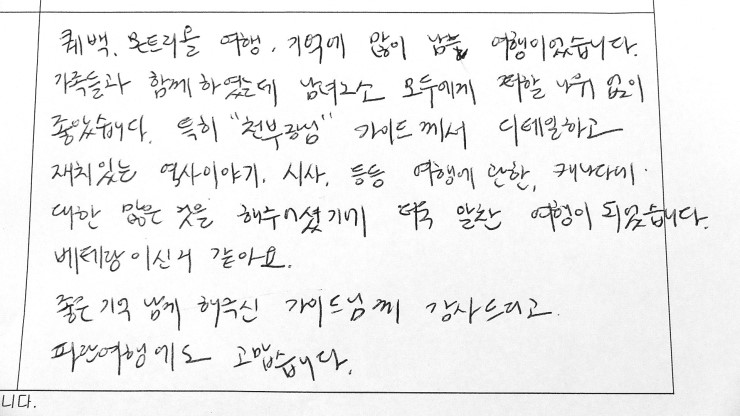 퀘백, 몬트리올 여행, 기억에 많이 남을 여행이었습니다.
가족들과 함께 하였는데 남녀노소 모두에게 더할 나위 없이
좋았습니다. 특히 "천부광님" 가이드께서 디테일하고
재치있는 역사이야기, 시사, 등등 여행에 관한, 캐나다에
대한 많은 것을 해주어셨기에 더욱 알찬 여행이 되었습니다.
베테랑이신거 같아요.
좋은 기억 남게 해주신 가이드님께 감사드리고
파란여행에도 고맙습니다.
니다.